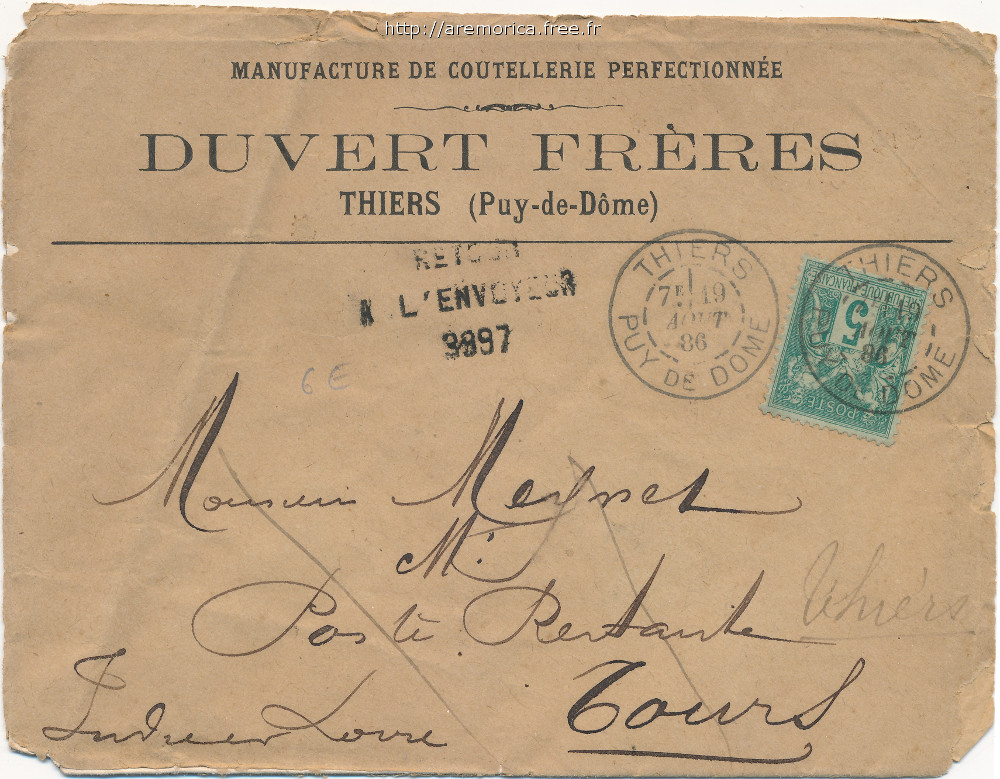 http://aremorica.free.fr
MANUFACTURE DE COUTELLERIE PERFECTIONNÉE
DUVERT FRÈRES
THIERS (Puy-de-Dôme)
RETOUR
A L'ENVOYEUR
3897
THIERS
7E 19
AOUT
86
PUY DE DOME
THIERS
19
AOUT
86
PUY DE DOME
REPUBLIQUE FRANÇAISE
5
POSTE
6E
Monsieur Meynet
Mr.
Poste Restante
Thiers
Tours
Indre et Loire